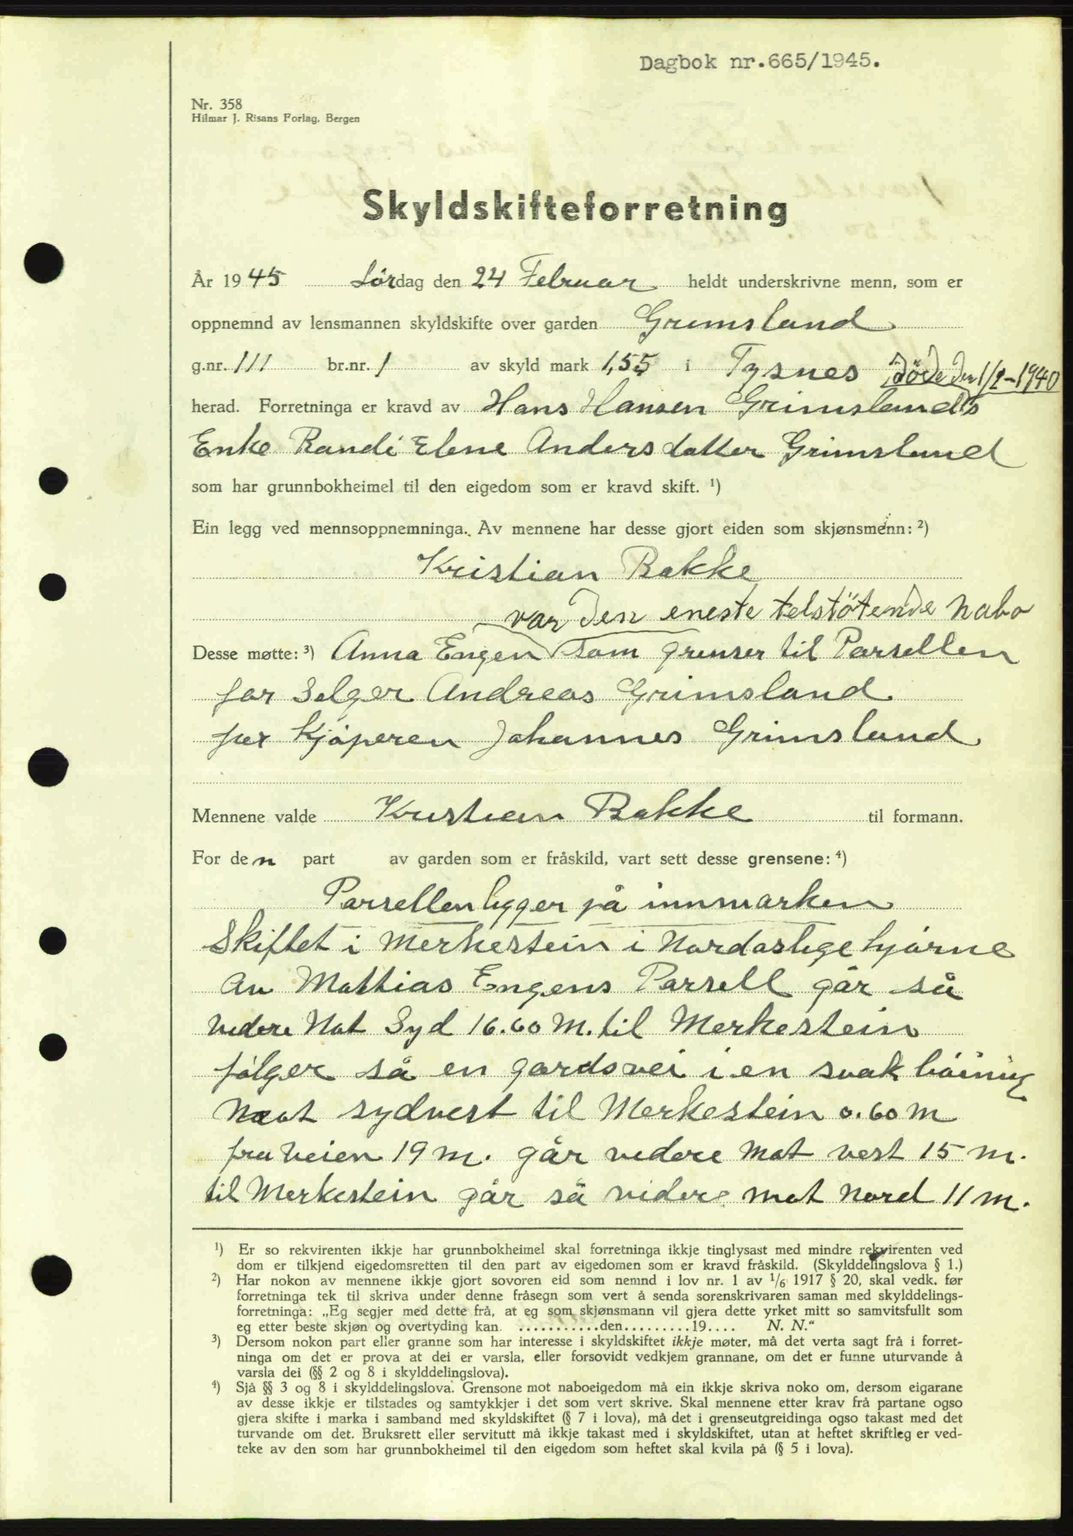 Dagbok nr.665/1945.
Nr. 358
Hilmar J. Risans Forlag, Bergen
Skyldskifteforretning
År 1945 Lördag den 24 Februar heldt underskrivne menn, som er
oppnemnd av lensmannen skyldskifte over garden Grimsland
g.nr. 111 br.nr. 1 av skyld mark 1,55 i Tysnes döde den 1/2-1940
herad. Forretninga er kravd av Hans Hansen Grimslands
Enke Randi Elene Andersdatter Grimsland
som har grunnbokheimel til den eigedom som er kravd skift. ¹)
Ein legg ved mennsoppnemninga. Av mennene har desse gjort eiden som skjønsmenn: ²)
Kristian Bakke
var den eneste telstötende Nabo
Desse møtte: ³) Anna Engen som grenser til Parsellen
for Selger Andreas Grimsland
for Kjöperen Johannes Grimsland
Mennene valde Kristian Bakke til formann.
For den part av garden som er fråskild, vart sett desse grensene: ⁴)
Parsellen ligger på innmarken
Skiftet i Merkestein i Nordöstlige hjörne
av Mathias Engens Parsell går så
videre Mot Syd 16.60 M. til Merkestein
fölger så en gardsvei i en svak böining
Mot sydvest til Merkestein 0.60 m
fra Veien 19 m. går videre mot vest 15 m.
til Merkestein går så videre mot nord 11 m.
¹) Er so rekvirenten ikkje har grunnbokheimel skal forretninga ikkje tinglysast med mindre rekvirenten ved
dom er tilkjend eigedomsretten til den part av eigedomen som er kravd fråskild. (Skylddelingslova § 1.)
²) Har nokon av mennene ikkje gjort sovoren eid som nemnd i lov nr. 1 av 1/6 1917 § 20, skal vedk. før
forretninga tek til skriva under denne fråsegn som vert å senda sorenskrivaren saman med skylddelings-
forretninga: „Eg segjer med dette frå, at eg som skjønsmann vil gjera dette yrket mitt so samvitsfullt som
eg etter beste skjøn og overtyding kan. ...........den.........19.... N. N."
³) Dersom nokon part eller granne som har interesse i skyldskiftet ikkje møter, må det verta sagt frå i forret-
ninga om det er prova at dei er varsla, eller forsovidt vedkjem grannane, om det er funne uturvande å
varsla dei (§§ 2 og 8 i skylddelingslova).
⁴) Sjå §§ 3 og 8 i skylddelingslova. Grensone mot naboeigedom må ein ikkje skriva noko om, dersom eigarane
av desse ikkje er tilstades og samtykkjer i det som vert skrive. Skal mennene etter krav frå partane ogso
gjera skifte i marka i samband med skyldskiftet (§ 7 i lova), må det i grenseutgreidinga ogso takast med det
turvande om det. Bruksrett eller servitutt må ikkje takast med i skyldskiftet, utan at heftet skriftleg er ved-
teke av den som har grunnbokheimel til den eigedom som heftet skal kvila på (§ 5 i lova).